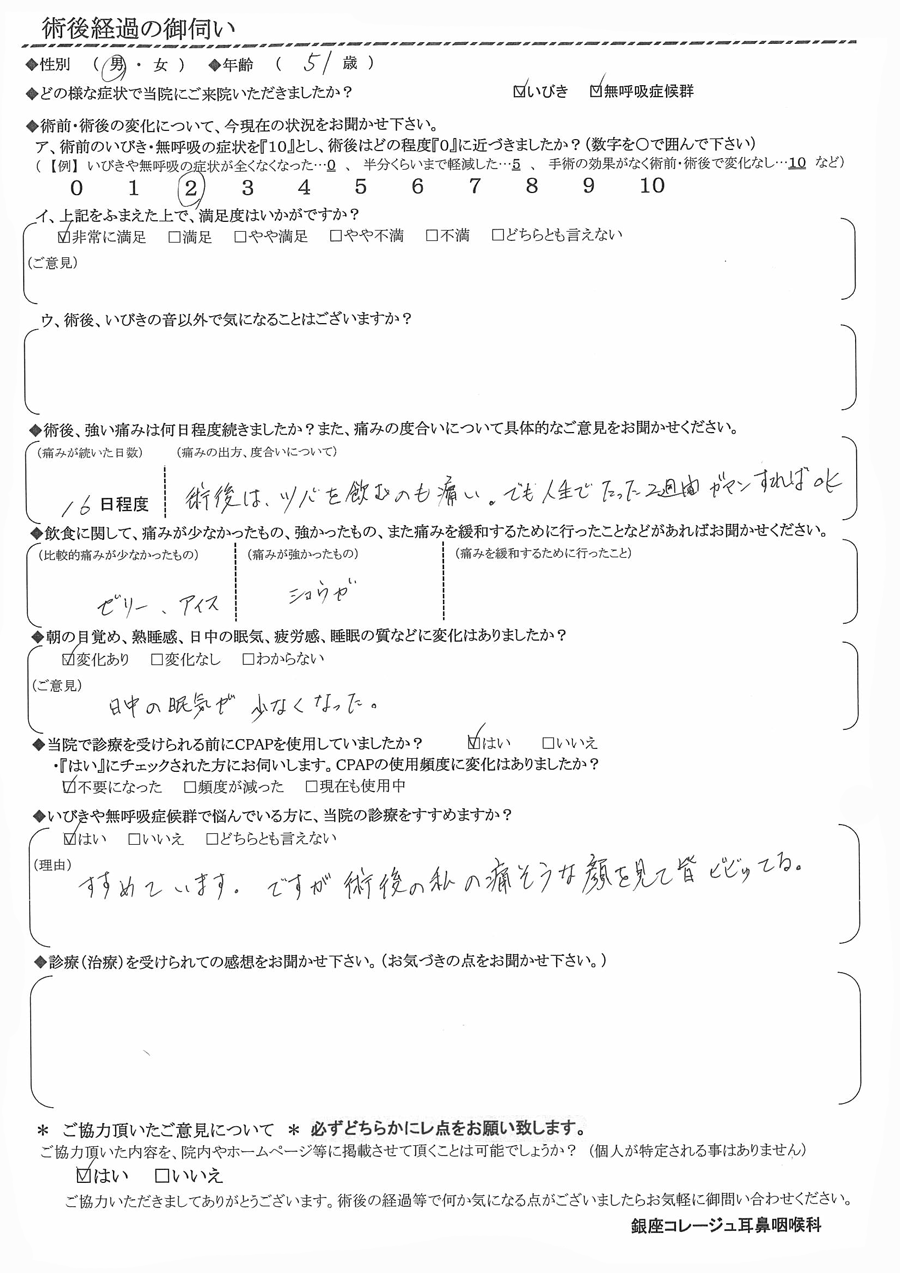 術後経過の御伺い
◆性別 ( 男 ・ 女 ) ◆年齢 ( 51 歳 )
◆どの様な症状で当院にご来院いただきましたか? ☑いびき ☑無呼吸症候群
◆術前・術後の変化について、今現在の状況をお聞かせ下さい。
ア、術前のいびき・無呼吸の症状を『10』とし、術後はどの程度『0』に近づきましたか?(数字を〇で囲んで下さい)
(【例】いびきや無呼吸の症状が全くなくなった…0 、 半分くらいまで軽減した…5 、 手術の効果がなく術前・術後で変化なし…10 など)
0 1 2 3 4 5 6 7 8 9 10
イ、上記をふまえた上で、満足度はいかがですか?
☑非常に満足 □満足 □やや満足 □やや不満 □不満 □どちらとも言えない
(ご意見)
ウ、術後、いびきの音以外で気になることはございますか?
◆術後、強い痛みは何日程度続きましたか?また、痛みの度合いについて具体的なご意見をお聞かせください。
(痛みが続いた日数) (痛みの出方、度合いについて)
16 日程度 術後は、ツバを飲むのも痛い。でも人生でたった2週間ガマンすればOK
◆飲食に関して、痛みが少なかったもの、強かったもの、また痛みを緩和するために行ったことなどがあればお聞かせください。
(比較的痛みが少なかったもの) (痛みが強かったもの) (痛みを緩和するために行ったこと)
ゼリー、アイス ショウガ
◆朝の目覚め、熟睡感、日中の眠気、疲労感、睡眠の質などに変化はありましたか?
☑変化あり □変化なし □わからない
(ご意見)
日中の眠気が少なくなった。
◆当院で診療を受けられる前にCPAPを使用していましたか? ☑はい □いいえ
・『はい』にチェックされた方にお伺いします。CPAPの使用頻度に変化はありましたか?
☑不要になった □頻度が減った □現在も使用中
◆いびきや無呼吸症候群で悩んでいる方に、当院の診療をすすめますか?
☑はい □いいえ □どちらとも言えない
(理由)
すすめています。ですが術後の私の痛そうな顔を見て皆ビビッてる。
◆診療(治療)を受けられての感想をお聞かせ下さい。(お気づきの点をお聞かせ下さい。)
＊ ご協力頂いたご意見について ＊ 必ずどちらかにレ点をお願い致します。
ご協力頂いた内容を、院内やホームページ等に掲載させて頂くことは可能でしょうか? (個人が特定される事はありません)
☑はい □いいえ
ご協力いただきましてありがとうございます。術後の経過等で何か気になる点がございましたらお気軽に御問い合わせください。
銀座コレージュ耳鼻咽喉科